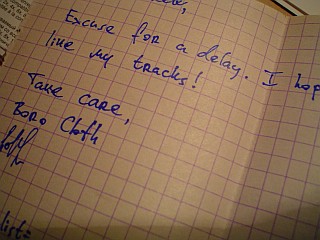 Excuse for a delay. I hop
like my tracks!
Take care,
Boro Cloth
list=